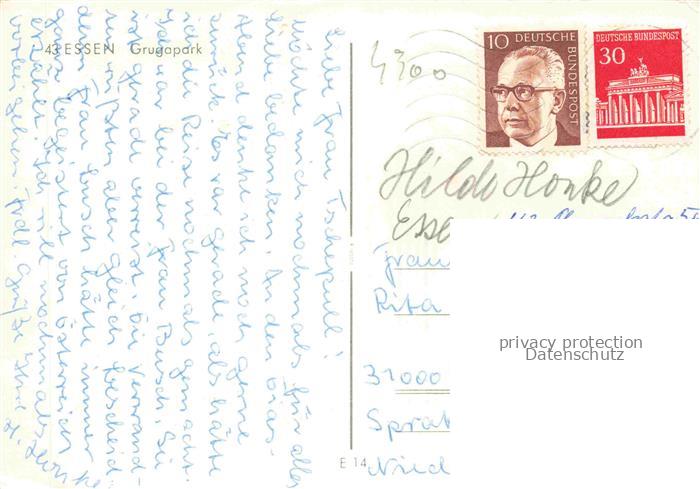 43 ESSEN Grugapark
Liebe Frau Tschepull!
Möchte mich nochmals für alles
liebe bedanken. An den Dias-
Abend denke ich noch gerne
zurück. Es war grade, als hätte
ich die Reise nochmals gemacht.
war bei der Frau Busch. Sie
ist grade verreist. Die Verwand-
ten wußten aber gleich bescheid-
denn Frau Busch hätte immer
ganz begeistert von Österreich
erzählt. Ich will nochmals
vorbei gehen. Frdl. Grüße Ihre H. Honke
E 14
4300
10 DEUTSCHE BUNDESPOST
DEUTSCHE BUNDESPOST
30
Hilde Honke
Esse
Frau
Rita
31000
Sprat
Nied
privacy protection
Datenschutz